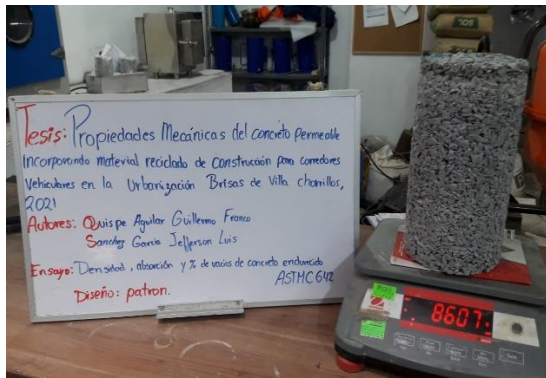 Tesis: Propiedades Mecánicas del concreto permeable
incorporando material reciclado de construcción para corredores
vehiculares en la Urbanización Brisas de Villa chorrillos,
2021
Autores: Quispe Aguilar Guillermo Franco
Sanchez Garcia Jefferson Luis
Ensayo: Densidad, absorción y % de vacios de concreto endurecido
ASTM C 642
Diseño: patron.
SOL
OHAUS
8607